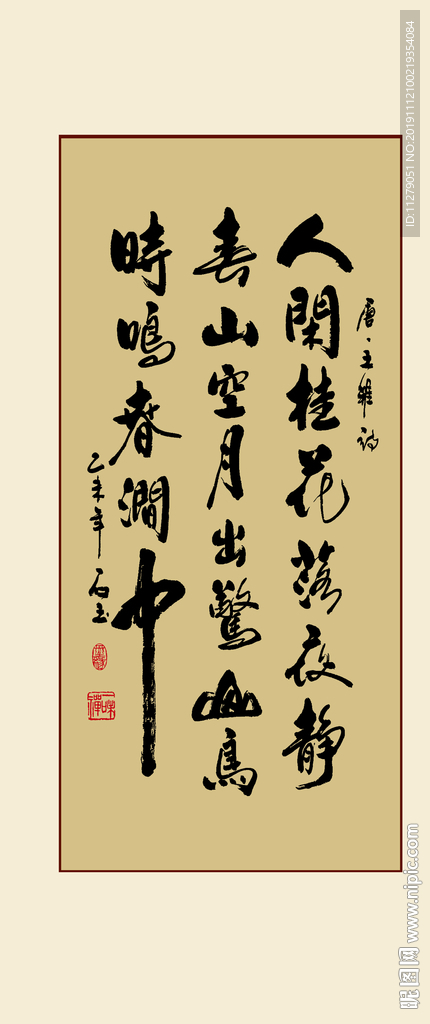 唐·王維詩
人閑桂花落夜靜
春山空月出驚山鳥
時鳴春澗中
乙未年 石玉
ID:11279051 NO:20191112100219354084
昵图网 www.nipic.com